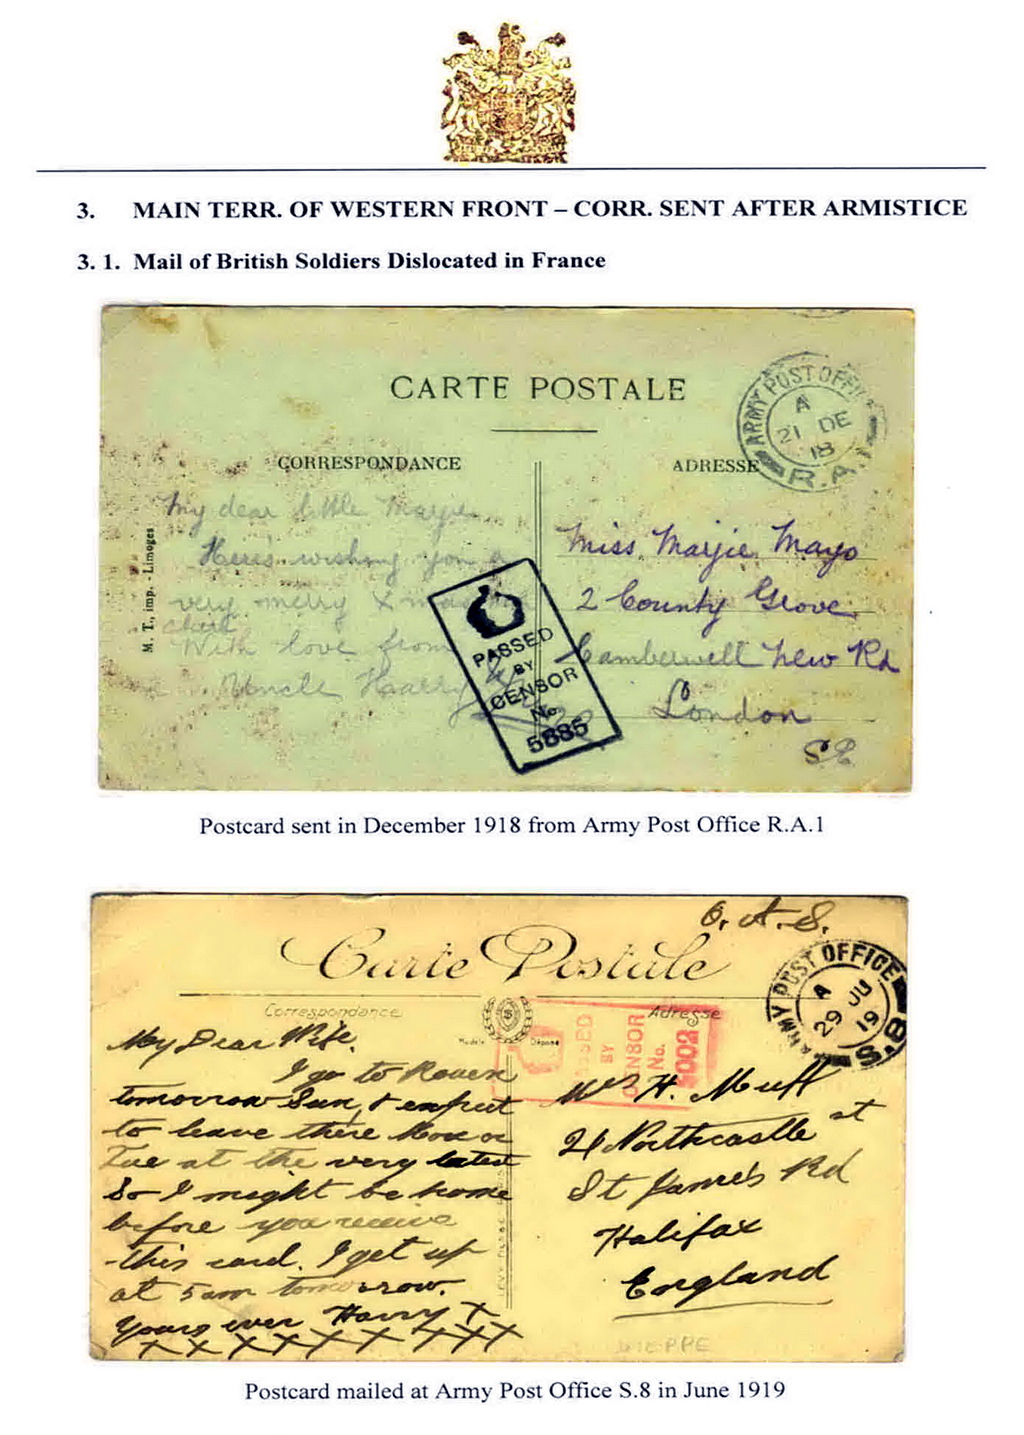 3. MAIN TERR. OF WESTERN FRONT – CORR. SENT AFTER ARMISTICE
3. 1. Mail of British Soldiers Dislocated in France
CARTE POSTALE
ARMY POST OFFICE
A
21 DE
18
R.A.1
CORRESPONDANCE
ADRESSE
M. T., imp. - Limoges
My dear little Marjie
Here's wishing you a
very merry Xmas
With love from
Uncle Harry
PASSED
BY
CENSOR
No.
5885
Miss Marjie Mayo
2 County Grove
Camberwell New Rd
London
SE
Postcard sent in December 1918 from Army Post Office R.A.1
O. A. S.
Carte Postale
ARMY POST OFFICE
A
29 JU
19
S.8
Correspondance
Adresse
Modèle Déposé
PASSED
BY
CENSOR
No.
My Dear Wife.
I go to Rouen
tomorrow Sun, & expect
to leave there Mon or
Tue at the very latest
So I might be home
before you receive
this card. I get up
at 5am tomorrow.
Yours ever Harry X
X X X X X X X X X
Mrs H. Muff
21 Northcastle st
St James's Rd
Halifax
England
DIEPPE
Postcard mailed at Army Post Office S.8 in June 1919